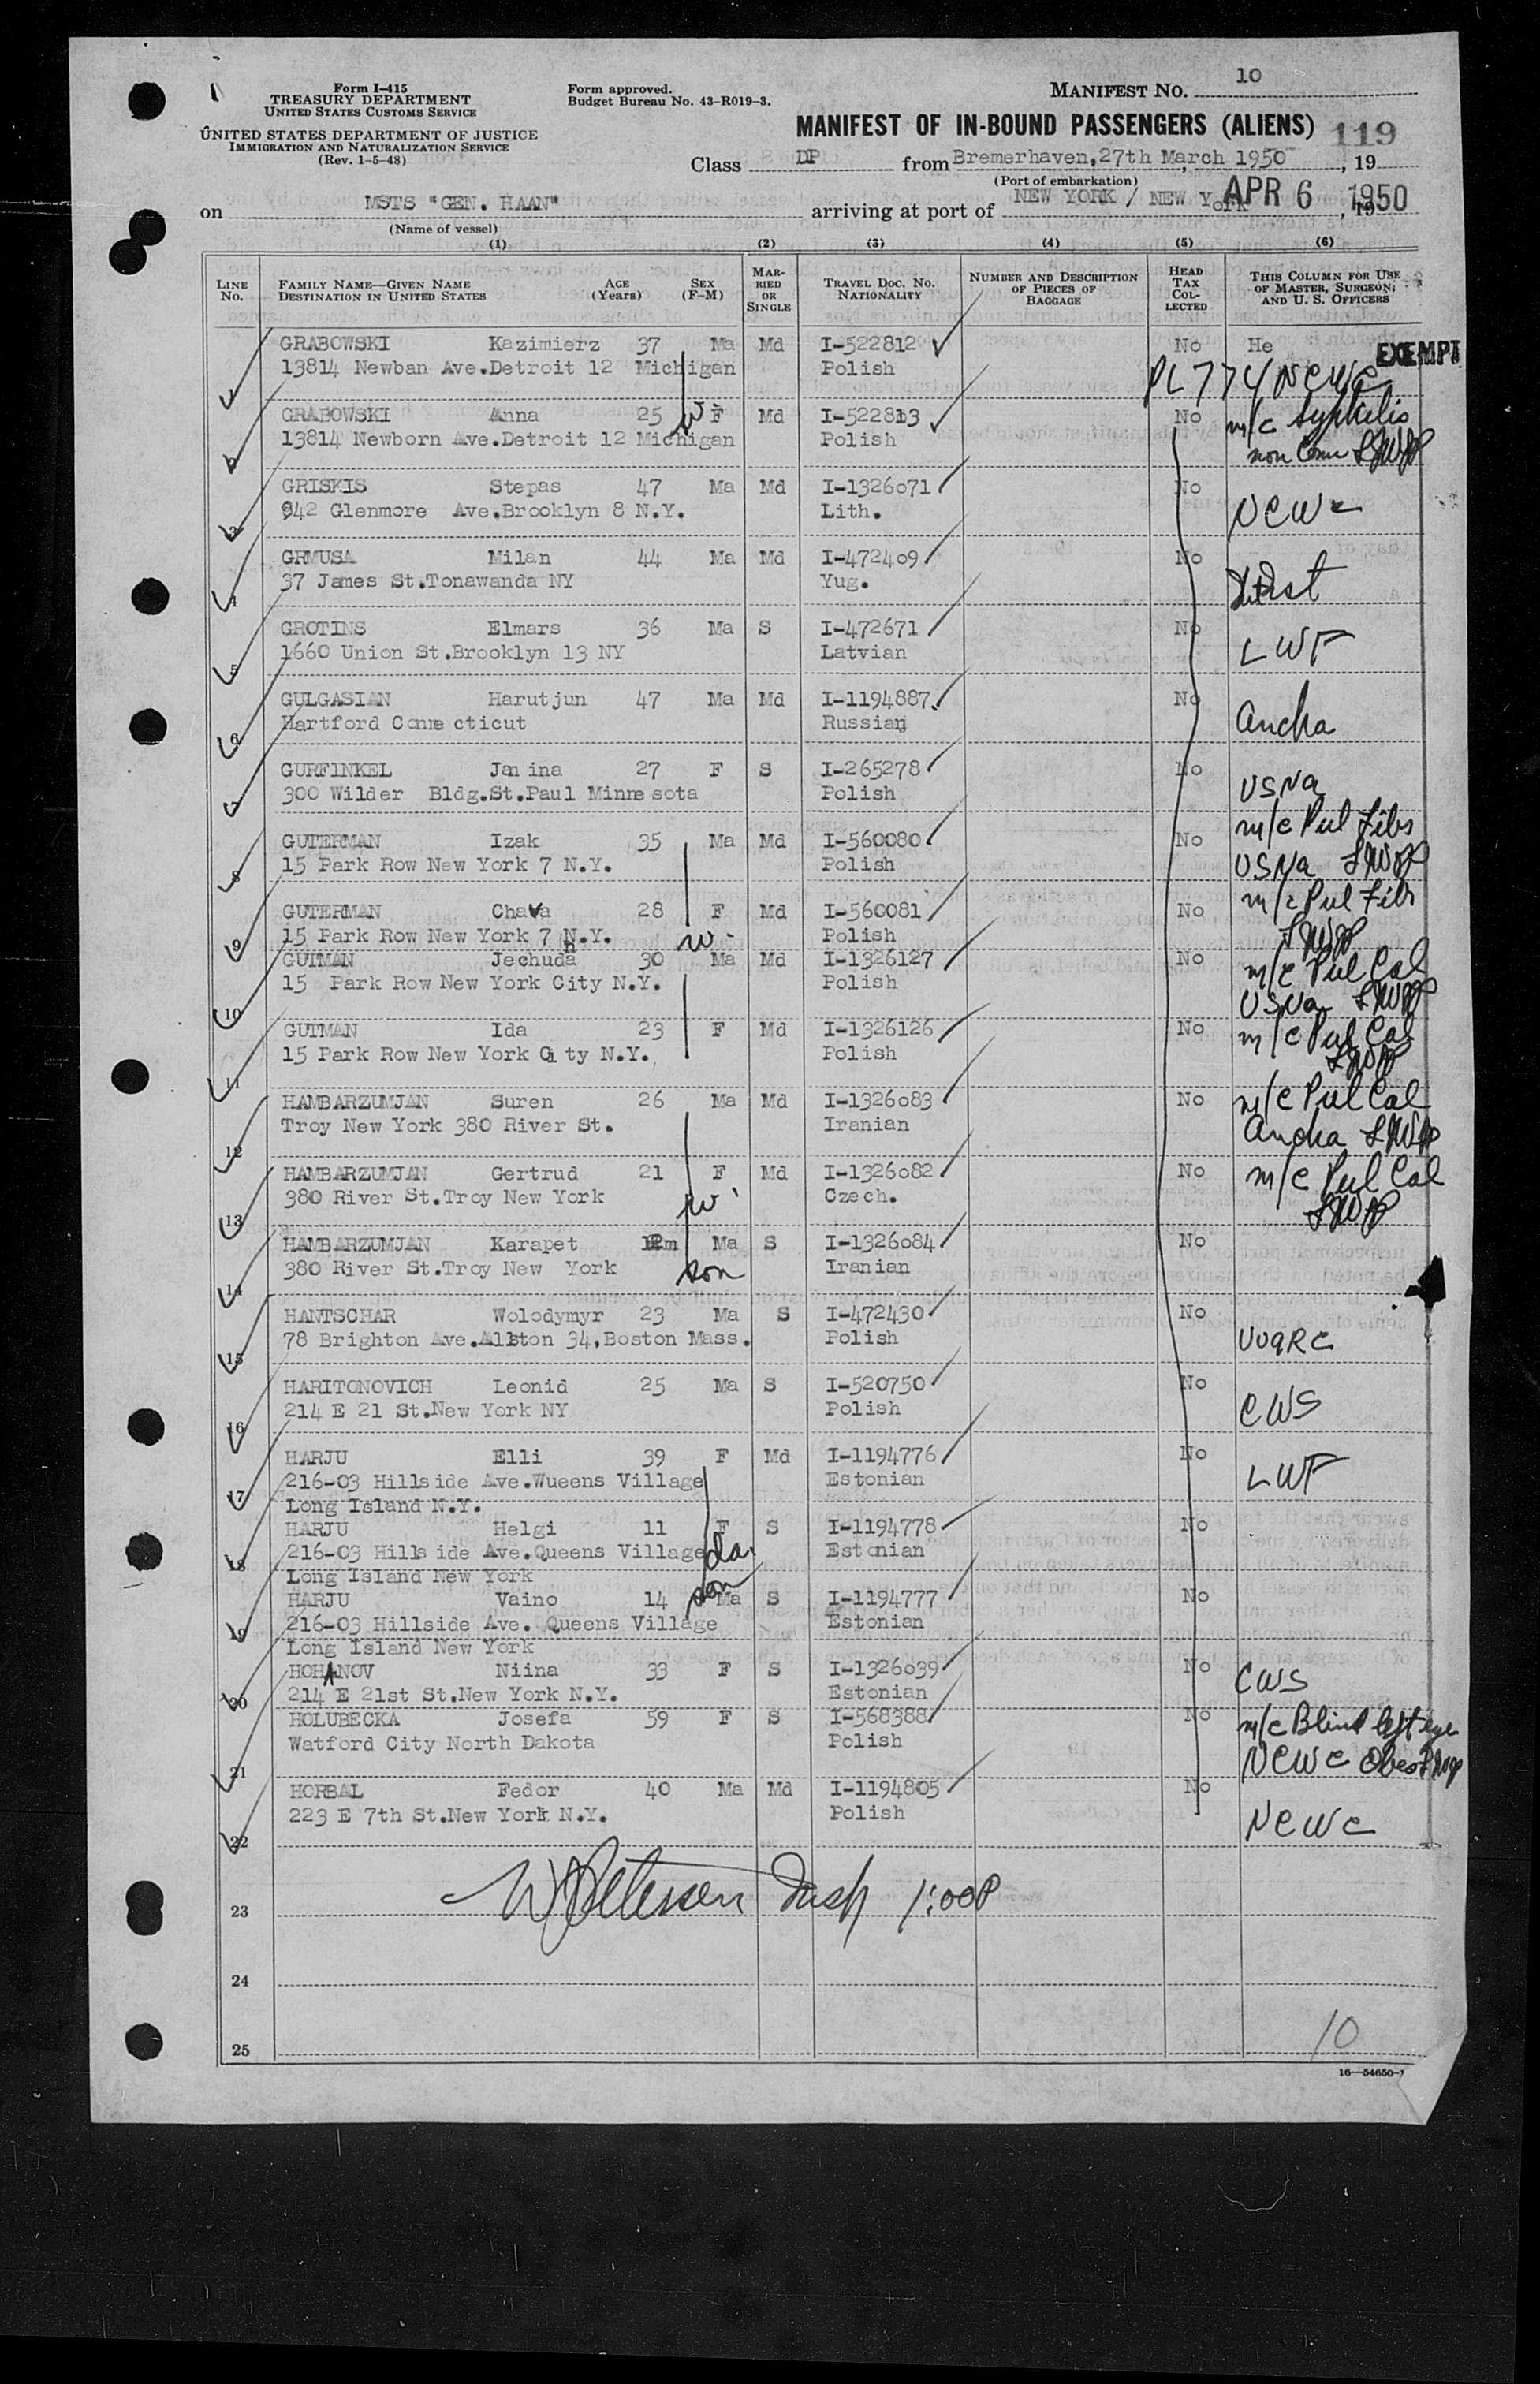 Form I-415
TREASURY DEPARTMENT
UNITED STATES CUSTOMS SERVICE
UNITED STATES DEPARTMENT OF JUSTICE
IMMIGRATION AND NATURALIZATION SERVICE
(Rev. 1-5-48)
Form approved.
Budget Bureau No. 43-R019-3.
MANIFEST NO. 10
MANIFEST OF IN-BOUND PASSENGERS (ALIENS) 119
Class DP from Bremerhaven,27th March 1950, 19
(Port of embarkation)
on MSTS "GEN. HAAN" arriving at port of NEW YORK / NEW York APR 6 1950, 19
(Name of vessel)
(1) (2) (3) (4) (5) (6)
LINE NO. FAMILY NAME—GIVEN NAME DESTINATION IN UNITED STATES AGE (Years) SEX (F-M) MARRIED OR SINGLE TRAVEL DOC. NO. NATIONALITY NUMBER AND DESCRIPTION OF PIECES OF BAGGAGE HEAD TAX COLLECTED THIS COLUMN FOR USE OF MASTER, SURGEON, AND U. S. OFFICERS
GRABOWSKI Kazimierz 37 Ma Md I-522812 No He EXEMPT
1 13814 Newban Ave.Detroit 12 Michigan Polish PL774/NCWC
GRABOWSKI Anna 25 w F Md I-522813 No m/c Syphilis
2 13814 Newborn Ave.Detroit 12 Michigan Polish non Comm
GRISKIS Stepas 47 Ma Md I-1326071 No
3 942 Glenmore Ave.Brooklyn 8 N.Y. Lith. NCWC
GRMUSA Milan 44 Ma Md I-472409 No
4 37 James St.Tonawanda NY Yug.
GROTINS Elmars 36 Ma S I-472671 No
5 1660 Union St.Brooklyn 13 NY Latvian LWF
GULGASIAN Harutjun 47 Ma Md I-1194887 No
6 Hartford Conne cticut Russian Ancha
GURFINKEL Jan ina 27 F S I-265278 No
7 300 Wilder Bldg.St.Paul Minne sota Polish USNA
GUTERMAN Izak 35 Ma Md I-560080 No m/c Pul Fibs
8 15 Park Row New York 7 N.Y. Polish USNA
GUTERMAN Chava 28 F Md I-560081 No m/c Pul Fibr
9 15 Park Row New York 7 N.Y. w Polish
GUTMAN Jechuda 30 Ma Md I-1326127 No m/c Pul Cal
10 15 Park Row New York City N.Y. Polish USNA
GUTMAN Ida 23 F Md I-1326126 No m/c Pul Cal
11 15 Park Row New York City N.Y. Polish
HAMBARZUMJAN Suren 26 Ma Md I-1326083 No m/c Pul Cal
12 Troy New York 380 River St. Iranian Ancha
HAMBARZUMJAN Gertrud 21 F Md I-1326082 No m/c Pul Cal
13 380 River St.Troy New York w Czech.
HAMBARZUMJAN Karapet 12m Ma S I-1326084 No
14 380 River St.Troy New York son Iranian
HANTSCHAR Wolodymyr 23 Ma S I-472430 No
15 78 Brighton Ave.Allston 34,Boston Mass. Polish UUARC
HARITONOVICH Leonid 25 Ma S I-520750 No
16 214 E 21 St.New York NY Polish CWS
HARJU Elli 39 F Md I-1194776 No
17 216-03 Hillside Ave.Wueens Village Estonian LWF
Long Island N.Y.
HARJU Helgi 11 F S I-1194778 No
18 216-03 Hills ide Ave.Queens Village da. Estonian
Long Island New York
HARJU Vaino 14 son Ma S I-1194777 No
19 216-03 Hillside Ave. Queens Village Estonian
Long Island New York
HOHANOV Niina 33 F S I-1326039 No
20 214 E 21st St.New York N.Y. Estonian CWS
HOLUBECKA Josefa 59 F S I-568388 No m/c Blind left eye
21 Watford City North Dakota Polish NCWC
HORBAL Fedor 40 Ma Md I-1194805 No
22 223 E 7th St.New York N.Y. Polish NCWC
W Petersen Insp 1:00P
23
24
25
10
16—54650-1